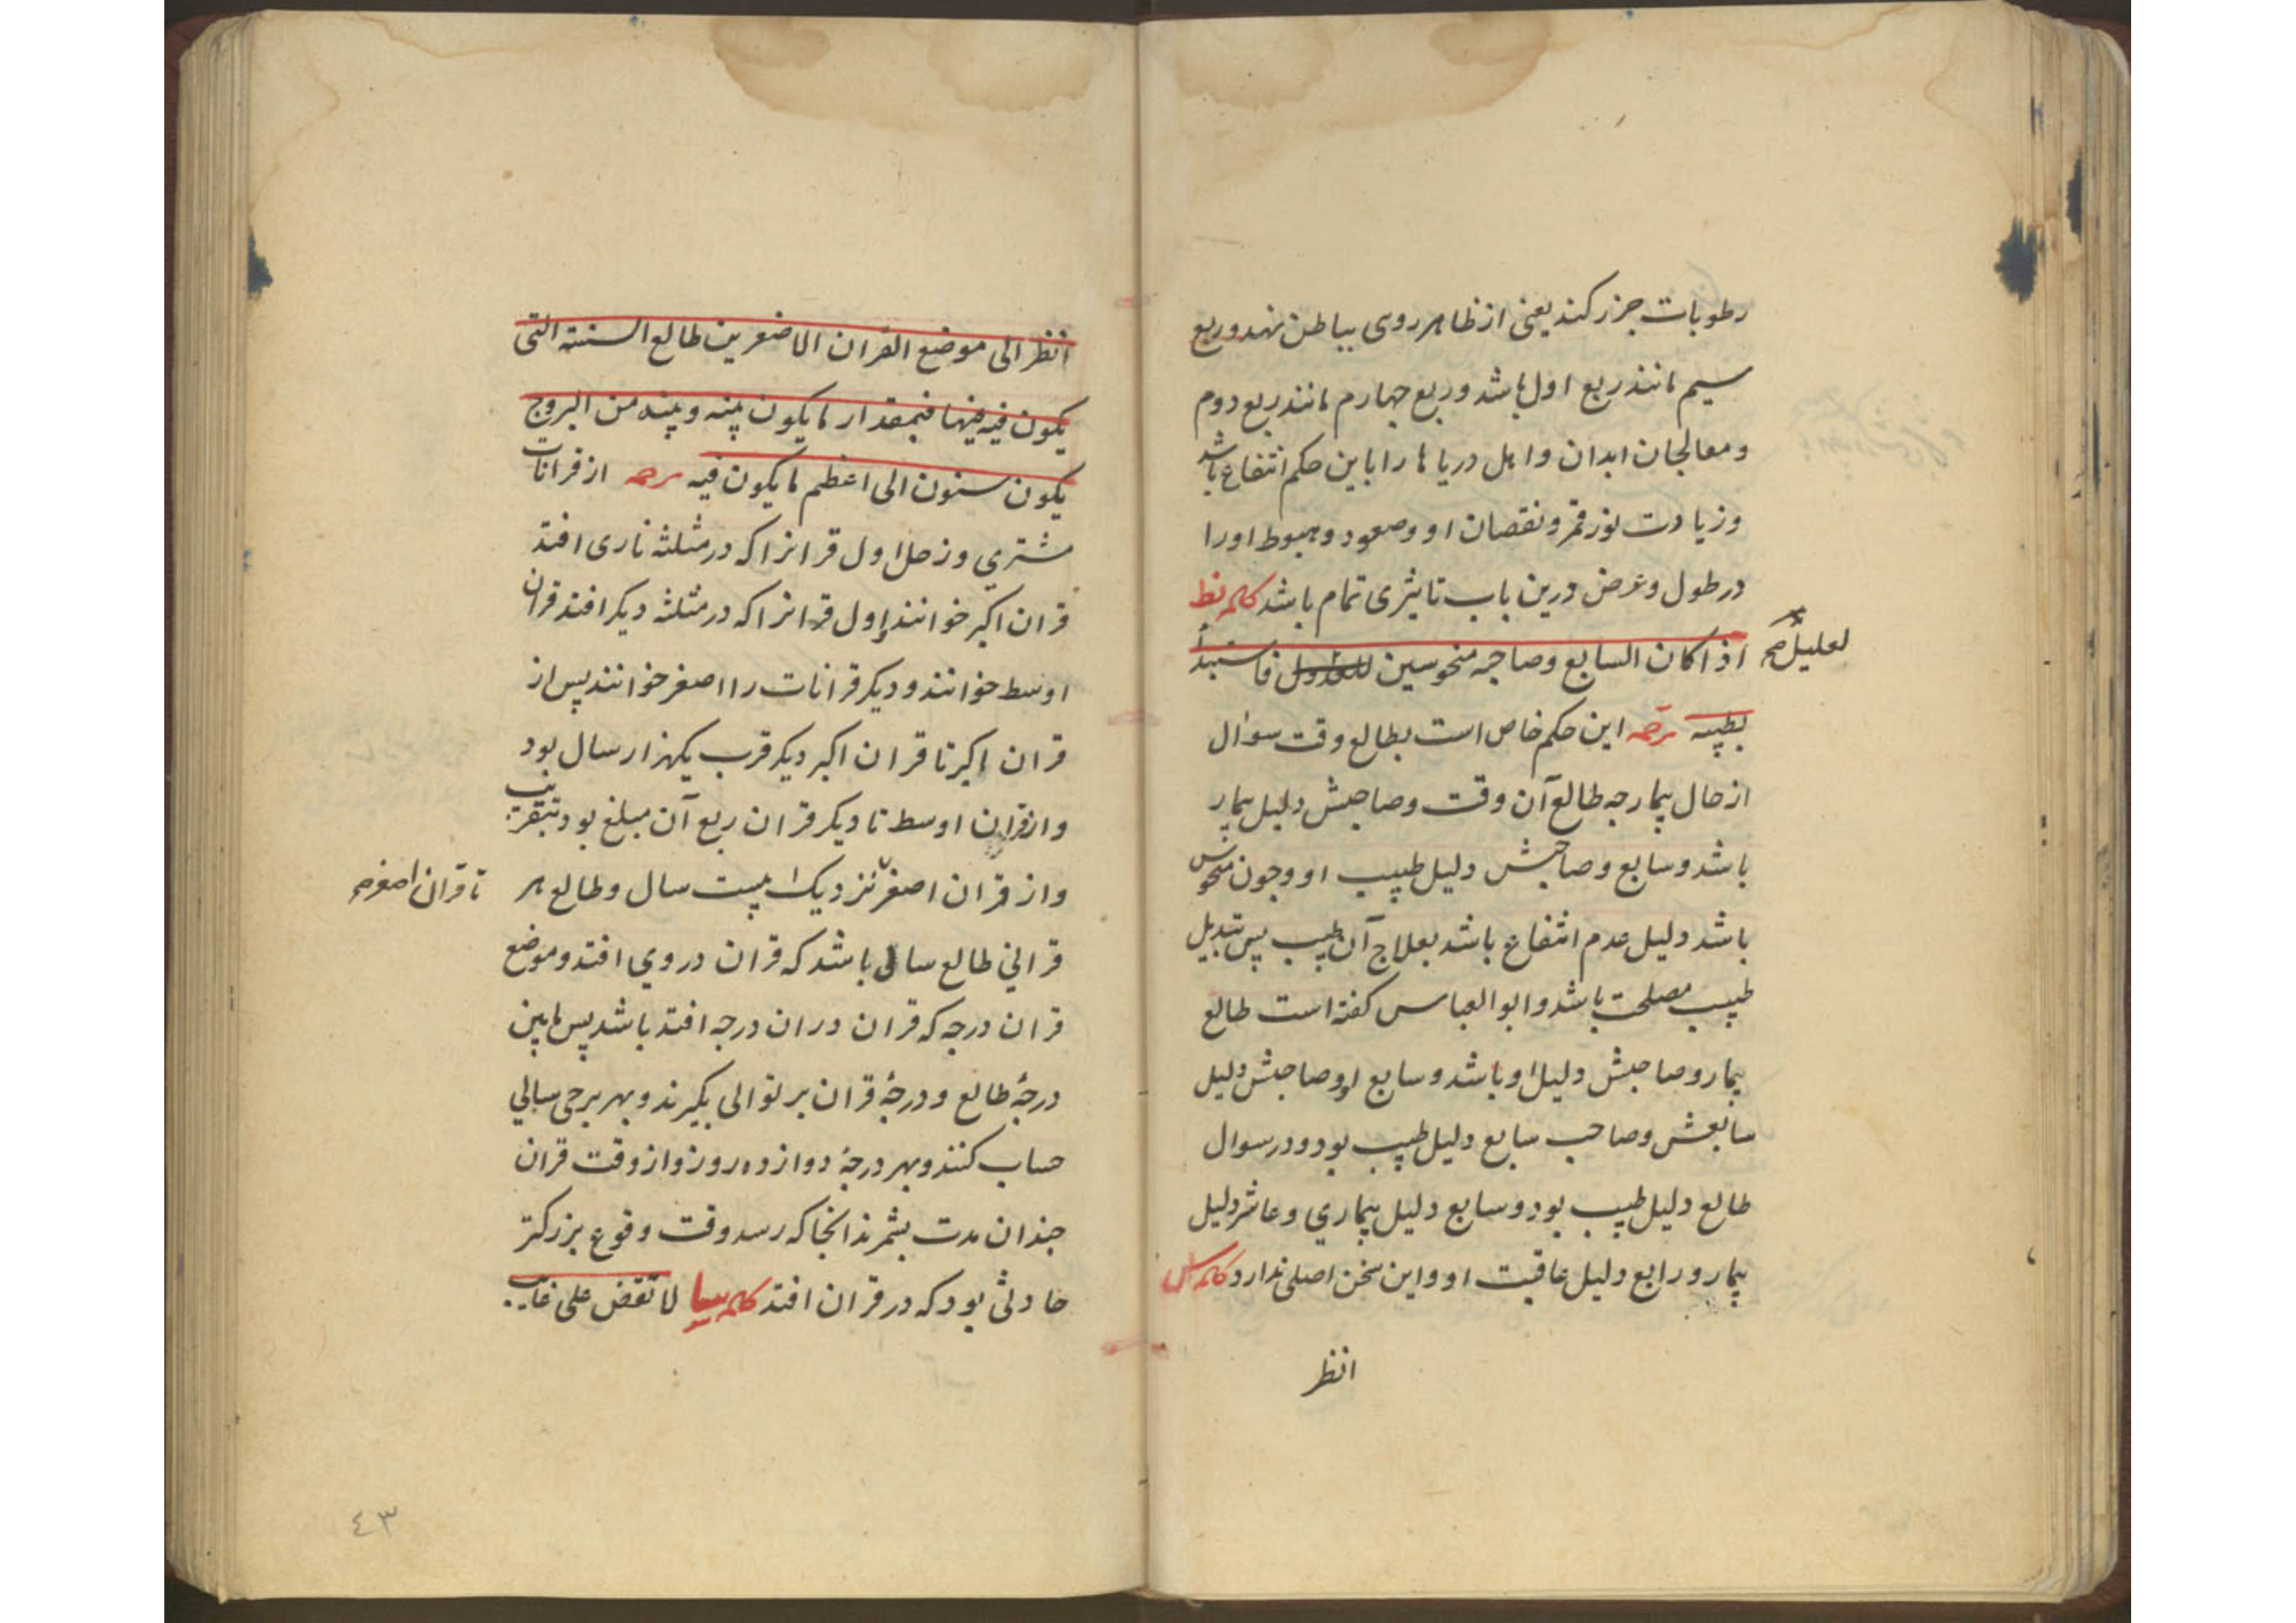 رطوبات جزر کند یعنی از ظاهر روی بباطن نهد و ربع
سیم مانند ربع اول باشد و ربع چهارم مانند ربع دوم
و معالجان ابدان و اهل دریاها را باین حکم انتفاع باشد
و زیادت نور قمر و نقصان او و صعود و هبوط او را
در طول و عرض درین باب تاثیری تمام باشد کلمه نط
اذا کان السابع و صاحبه منحوسین فاستبدل
لعلیل صح
بطبیبه ترجمه این حکم خاص است بطالع وقت سوال
از حال بیمار چه طالع آن وقت و صاحبش دلیل بیمار
باشد و سابع و صاحبش دلیل طبیب او و چون منحوس
باشد دلیل عدم انتفاع باشد بعلاج آن طبیب پس تبدیل
طبیب مصلحت باشد و ابو العباس کفته است طالع
بیمار و صاحبش دلیل او باشد و سابع او و صاحبش دلیل
سابعش و صاحب سابع دلیل طبیب بود و در سوال
طالع دلیل طبیب بود و سابع دلیل بیماری و عاشر دلیل
بیمار و رابع دلیل عاقبت او و این سخن اصلی ندارد کلمه س
انظر
انظر الی موضع القران الاصغر من طالع السنة التی
یکون فیه فیها فبمقدار ما یکون بینه و بینه من البروج
یکون سنون الی اعظم ما یکون فیه ترجمه از قرانات
مشتری و زحل اول قرانرا که در مثلثه ناری افتد
قران اکبر خوانند و اول قرانرا که در مثلثه دیکر افتد قران
اوسط خوانند و دیکر قرانات را اصغر خوانند پس از
قران اکبر تا قران اکبر دیکر قرب یکهزار سال بود
و از قران اوسط تا دیکر قران ربع آن مبلغ بود بتقریب
و از قران اصغر نزدیک بیست سال و طالع هر
تا قران اصغر صح
قرانی طالع سالی باشد که قران در وی افتد و موضع
قران درجه که قران در ان درجه افتد باشد پس مابین
درجهٔ طالع و درجهٔ قران بر توالی بکیرند و بهر برجی سالی
حساب کنند و بهر درجهٔ دوازده روز و از وقت قران
چندان مدت بشمرند انجا که رسد وقت وقوع بزرکتر
حادثی بود که در قران افتد کلمه سا لا تقض علی غایب
٤٣